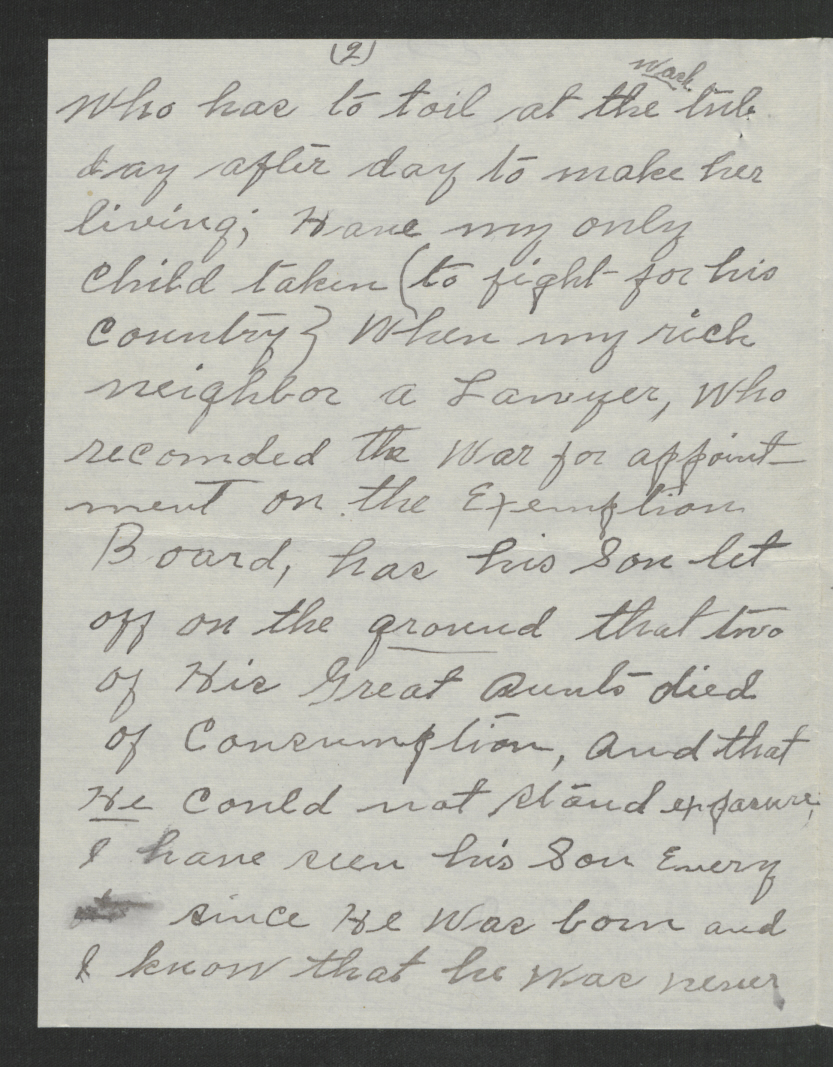 (2)
Wash
Who has to toil at the tub
day after day to make her
living; Have my only
Child taken (to fight for his
Country} When my rich
neighbor a Lawyer, Who
recomded the War for appoint-
ment on the Exemption
Board, has his Son let
off on the ground that two
of His Great Aunts died
of Consumption, And that
He Could not stand exposure,
I have seen his Son Every
since He Was born and
I know that he was never